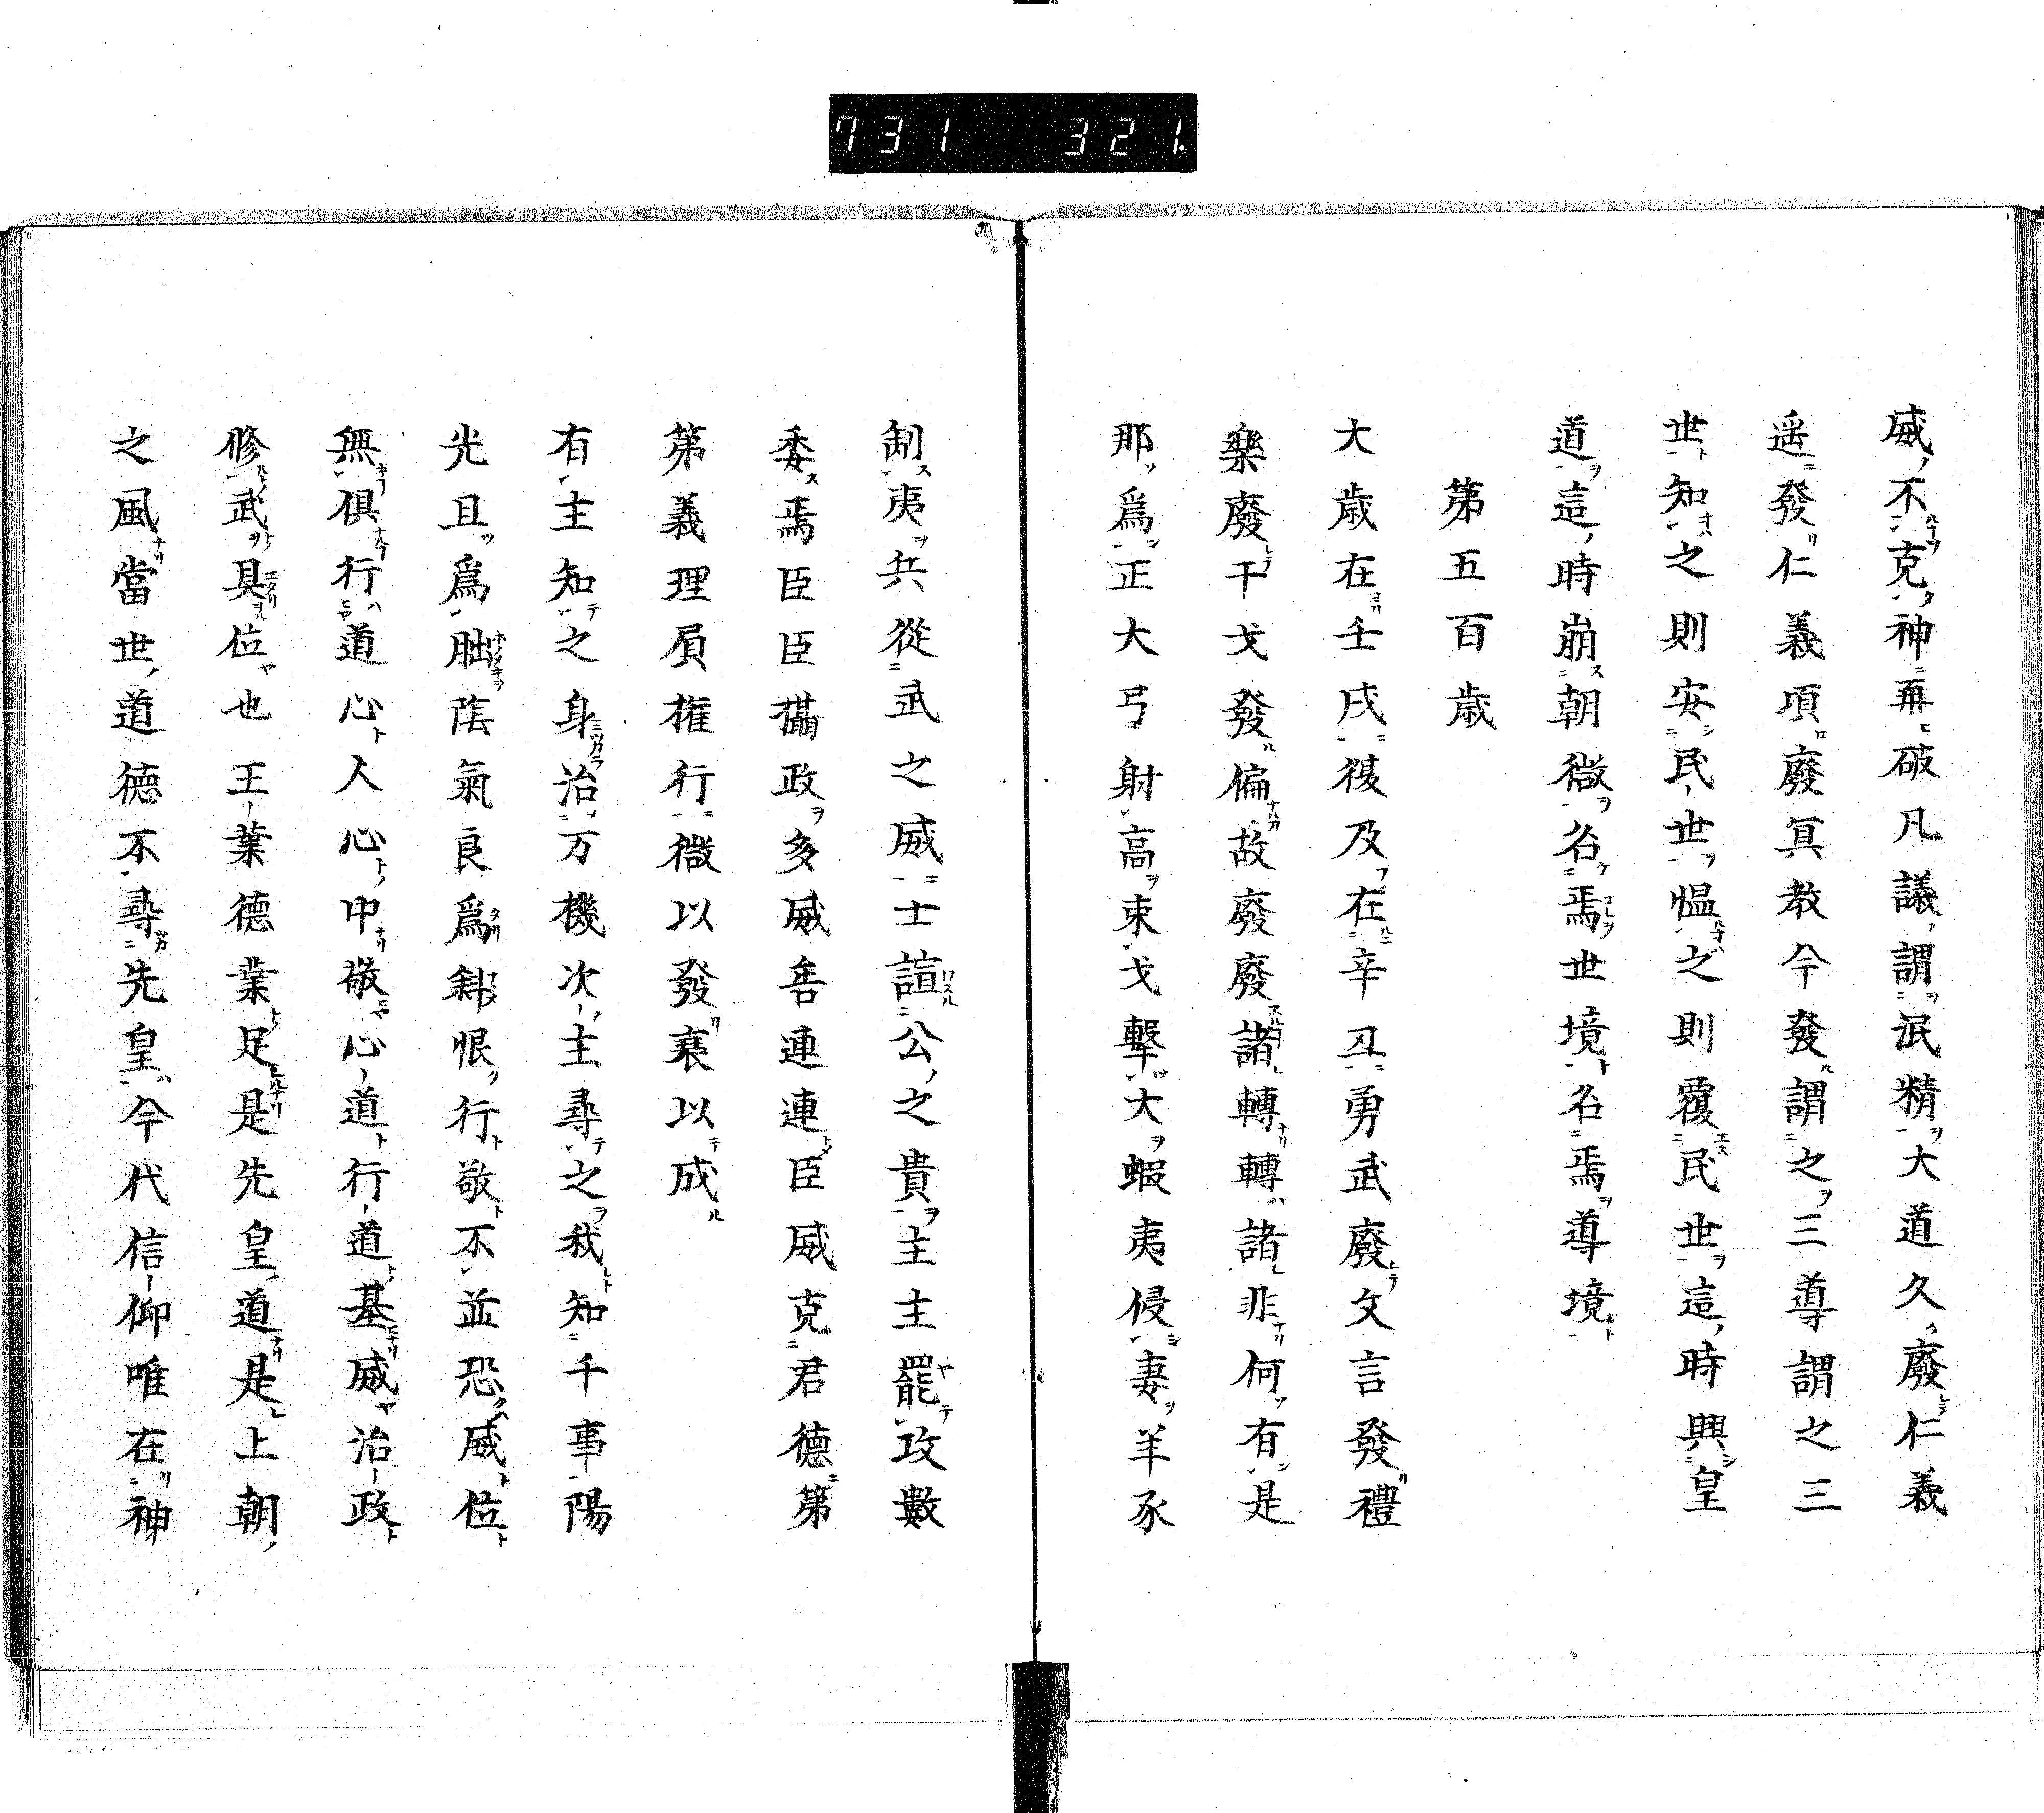 731 321.
威不克神再破凡議謂泯精大道久廢仁義
遥發仁義項廢真教今發謂之三導謂之三
世知之則安民世愠之則覆民世這時興皇
道這時崩朝微名焉世境名焉導境
第五百歳
大歳在壬戌復及在辛丑勇武廢文言發禮
樂廢干戈發偏故廢廢諸轉轉諸非何有是
那爲正大弓射高束戈撃大蝦夷侵妻羊豕
制夷兵從武之威士諠公之貴主主罷攻數
委焉臣臣攝政多威吾連連臣威克君德第
第義理屓権行微以發衰以成
有主知之身治万機次主尋之我知千事陽
光且爲朏陰氣良爲斜恨行敬不並恐威位
無俱行道心人心中敬心道行道基威治政
修武具位也王業德業足是先皇道是上朝
之風當世道德不尋先皇今代信仰唯在神